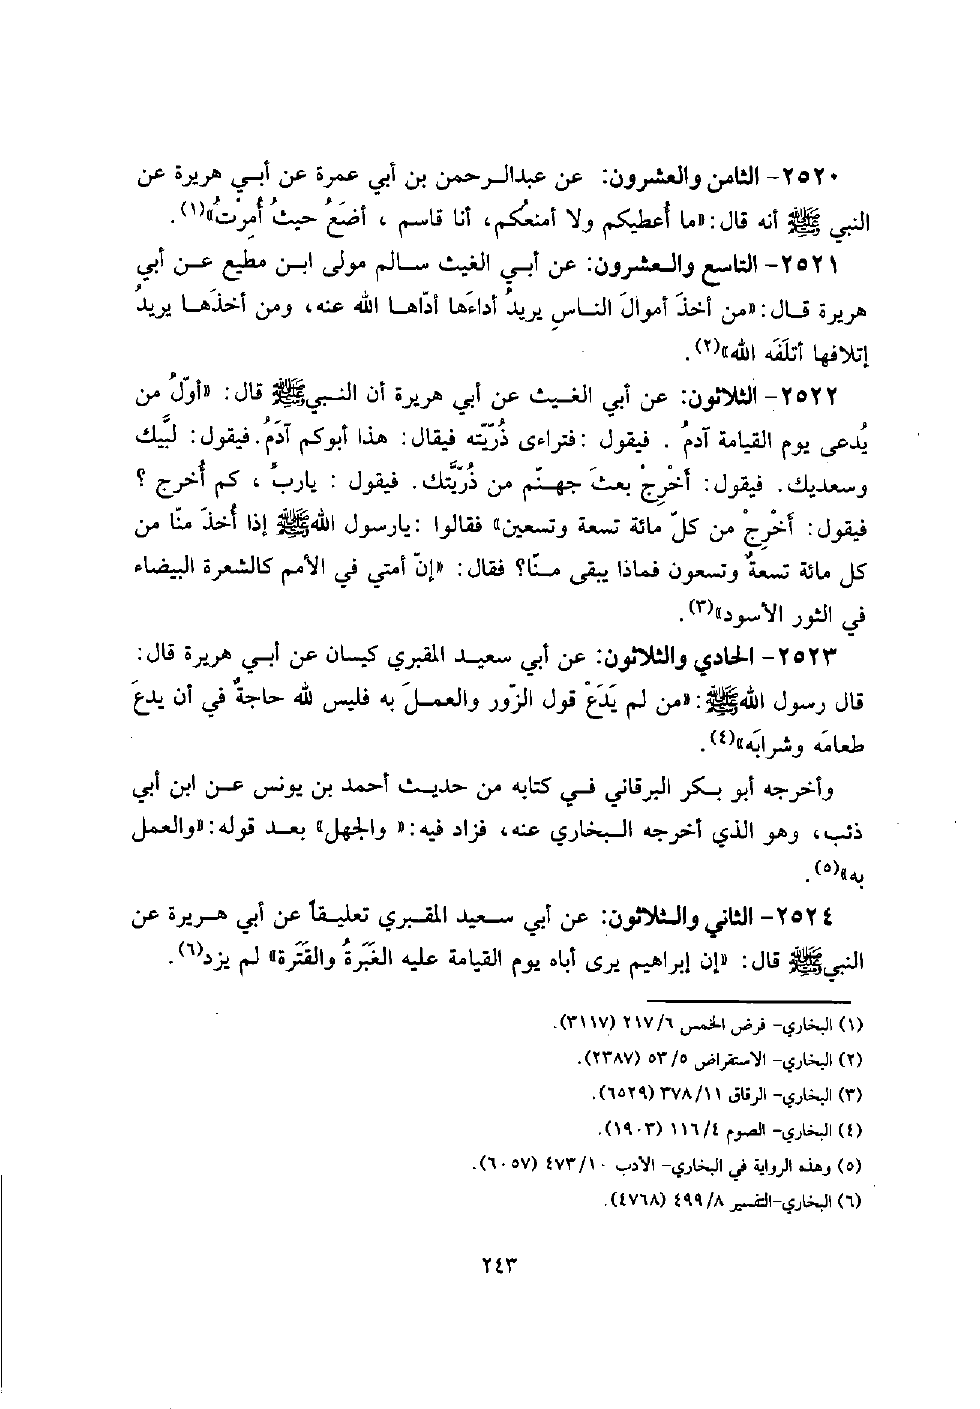 ٢٥٢٠- الثامن والعشرون: عن عبدالرحمن بن أبي عمرة عن أبي هريرة عن
النبي ﷺ أنه قال: «ما أُعطيكم ولا أمنعُكم، أنا قاسم ، أضَعُ حيثُ أُمِرْتُ»(١).
٢٥٢١- التاسع والعشرون: عن أبي الغيث سالم مولى ابن مطيع عن أبي
هريرة قال: «من أخذَ أموالَ الناسِ يريدُ أداءَها أدّاها الله عنه، ومن أخذَها يريدُ
إتلافها أتلَفَه الله»(٢).
٢٥٢٢- الثلاثون: عن أبي الغيث عن أبي هريرة أن النبيﷺ قال: «أوّلُ من
يُدعى يوم القيامة آدمُ . فيقول :فتراءى ذُرّيّته فيقال: هذا أبوكم آدَمُ.فيقول: لبَّيك
وسعديك. فيقول: أخْرِجْ بعثَ جهنّم من ذُرّيَّتك. فيقول : ياربُّ ، كم أُخرج ؟
فيقول: أَخْرِجْ من كلّ مائة تسعة وتسعين» فقالوا :يارسول اللهﷺ إذا أُخذَ منّا من
كل مائة تسعةٌ وتسعون فماذا يبقى منّا؟ فقال: «إنّ أمتي في الأمم كالشعرة البيضاء
في الثور الأسود»(٣).
٢٥٢٣- الحادي والثلاثون: عن أبي سعيد المقبري كيسان عن أبي هريرة قال:
قال رسول اللهﷺ: «من لم يَدَعْ قول الزّور والعملَ به فليس لله حاجةٌ في أن يدعَ
طعامَه وشرابَه»(٤).
وأخرجه أبو بكر البرقاني في كتابه من حديث أحمد بن يونس عن ابن أبي
ذئب، وهو الذي أخرجه البخاري عنه، فزاد فيه: « والجهل» بعد قوله: «والعمل
به»(٥).
٢٥٢٤- الثاني والثلاثون: عن أبي سعيد المقبري تعليقاً عن أبي هريرة عن
النبيﷺ قال: «إن إبراهيم يرى أباه يوم القيامة عليه الغَبَرةُ والقَتَرة» لم يزد(٦).
(١) البخاري- فرض الخمس ٢١٧/٦ (٣١١٧).
(٢) البخاري- الاستقراض ٥٣/٥ (٢٣٨٧).
(٣) البخاري- الرقاق ٣٧٨/١١ (٦٥٢٩).
(٤) البخاري- الصوم ١١٦/٤ (١٩٠٣).
(٥) وهذه الرواية في البخاري- الأدب ٤٧٣/١٠ (٦٠٥٧).
(٦) البخاري-التفسير ٤٩٩/٨ (٤٧٦٨).
٢٤٣